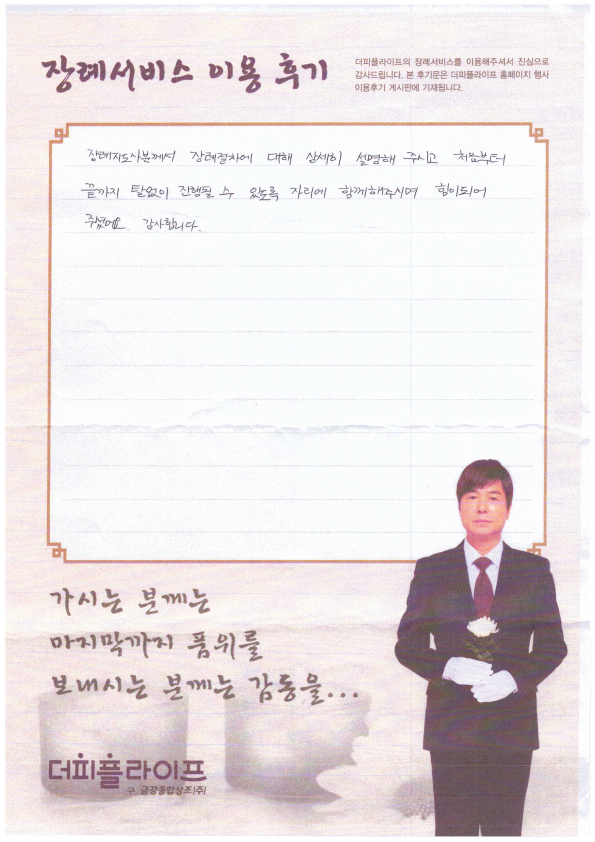 장례서비스 이용 후기
더피플라이프의 장례서비스를 이용해주셔서 진심으로
감사드립니다. 본 후기문은 더피플라이프 홈페이지 행사
이용후기 게시판에 기재됩니다.
장례지도사분께서 장례절차에 대해 상세히 설명해 주시고 처음부터
끝까지 탈없이 진행될 수 있도록 자리에 함께해주시며 힘이되어
주셨어요. 감사합니다.
가시는 분께는
마지막까지 품위를
보내시는 분께는 감동을...
더피플라이프
구. 금강종합상조(주)